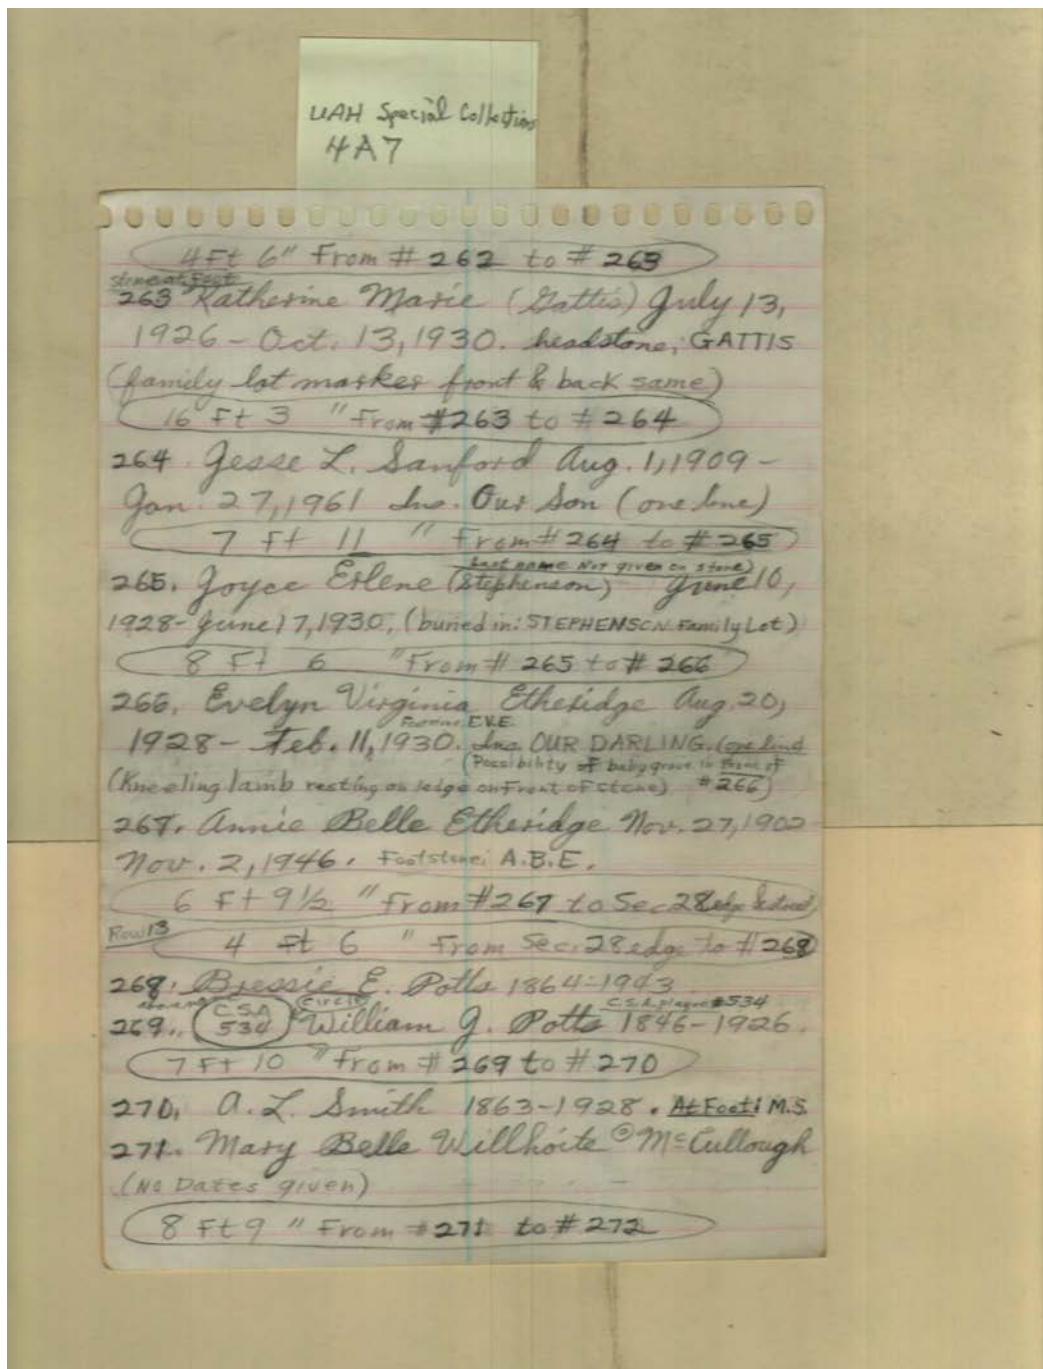 UAH Special Collections
4A7
4 Ft 6" From # 262 to # 263
stone at Foot
263 Katherine Marie (Gattis) July 13,
1926 - Oct. 13, 1930. headstone; GATTIS
(family lot marker front & back same)
16 Ft 3 " From #263 to # 264
264. Jesse L. Sanford Aug. 1, 1909 -
Jan. 27, 1961 Ins. Our Son (one line)
7 Ft 11 " From # 264 to # 265
Last name Not given on stone)
265. Joyce Erlene (Stephenson) June 10,
1928 - June 17, 1930, (buried in: STEPHENSON Family Lot)
8 Ft 6 " From # 265 to # 266
266. Evelyn Virginia Etheridge Aug. 20,
E.V.E.
1928 - Feb. 11, 1930. Ins. OUR DARLING. (one line)
(Possibility of baby grave in front of
(Kneeling lamb resting on ledge on Front of stone) #266)
267. Annie Belle Etheridge Nov. 27, 1902
Nov. 2, 1946. Footstone: A.B.E.
6 Ft 9½ " From #267 to Sec 28 edge
Row 13
4 Ft 6 " From Sec. 28 edge to # 268
268. Bressie E. Potts 1864-1943
C.S.A. Circle C.S.A. plaque #534
269. 534 William J. Potts 1846-1926.
7 Ft 10 " From # 269 to # 270
270. A. L. Smith 1863-1928. At Foot: M.S.
271. Mary Belle Willhoite McCullough
(No Dates given)
8 Ft 9 " From # 271 to # 272